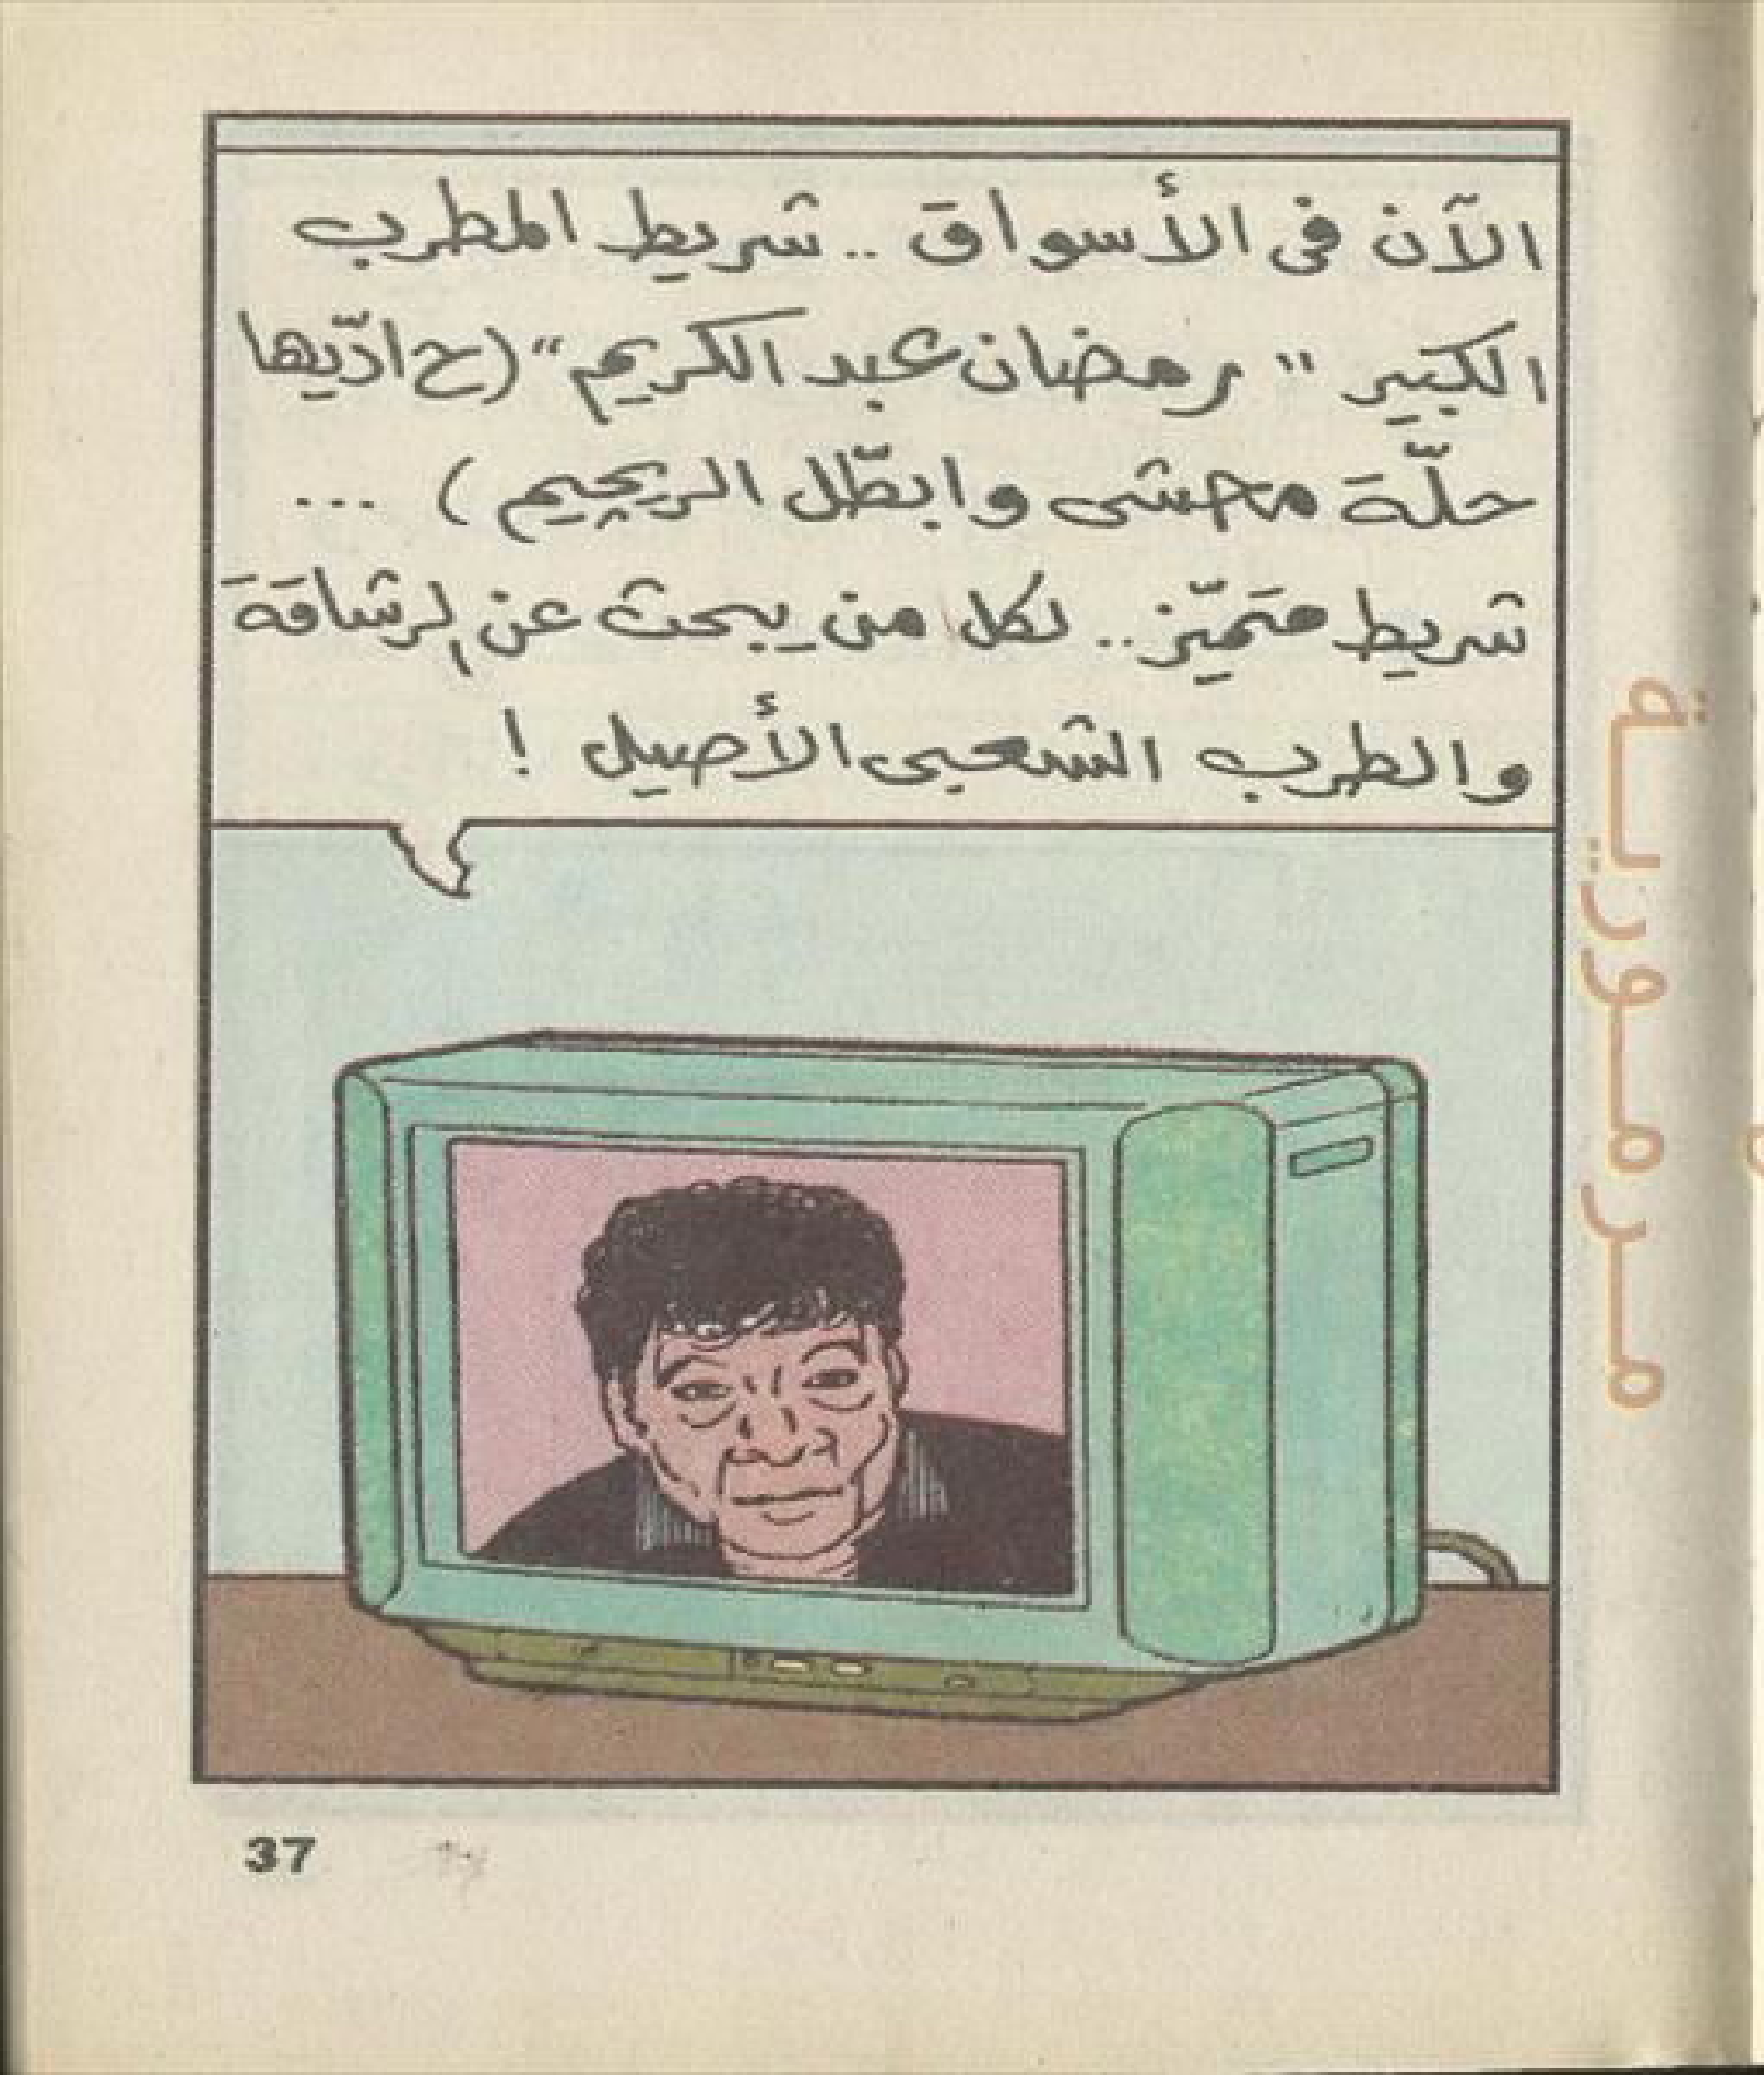 الآن فى الأسواق .. شريط المطرب
الكبير " رمضان عبد الكريم " (ح ادّيها
حلّة محشى وابطّل الريچيم) ...
شريط متميّز .. لكل من يبحث عن الرشاقة
والطرب الشعبى الأصيل !
مـرمـوريـة
37